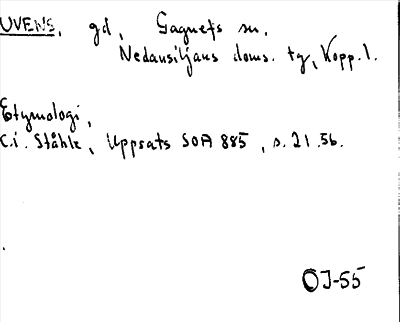 UVENS, gd, Gagnefs sn.
Nedansiljans doms. tg, Kopp. l.
Etymologi,
C.i. Ståhle, Uppsats SOA 885, s. 21.56.
OJ-55